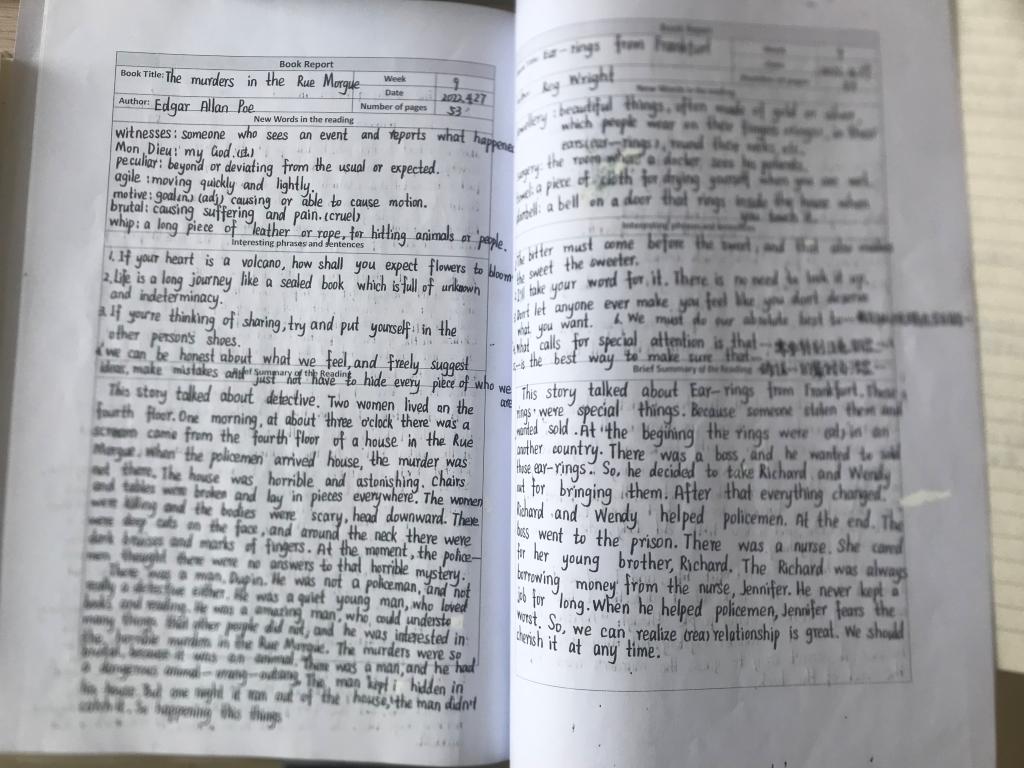 Book Report
Book Title: The murders in the Rue Morgue
Week 9
Date 2022.4.27
Author: Edgar Allan Poe
Number of pages 53
New Words in the reading
witnesses: someone who sees an event and reports what happened
Mon Dieu: my God.
peculiar: beyond or deviating from the usual or expected.
agile: moving quickly and lightly.
motive: goal(n) (adj) causing or able to cause motion.
brutal: causing suffering and pain. (cruel)
whip: a long piece of leather or rope, for hitting animals or people.
Interesting phrases and sentences
1. If your heart is a volcano, how shall you expect flowers to bloom
2. Life is a long journey like a sealed book which is full of unknown
and indeterminacy.
3. If you're thinking of sharing, try and put yourself in the
other person's shoes.
4. we can be honest about what we feel, and freely suggest
ideas, make mistakes and just not have to hide every piece of who we
are
Brief Summary of the Reading
This story talked about detective. Two women lived on the
fourth floor. One morning, at about three o'clock there was a
scream came from the fourth floor of a house in the Rue
Morgue. When the policemen arrived house, the murder was
not there. The house was horrible and astonishing. Chairs
and tables were broken and lay in pieces everywhere. The women
were killing and the bodies were scary, head downward. There
were deep cuts on the face, and around the neck there were
dark bruises and marks of fingers. At the moment, the police-
men thought there were no answers to that horrible mystery.
There was a man, Dupin. He was not a policeman, and not
really a detective either. He was a quiet young man, who loved
books and reading. He was a amazing man, who could understo
many things that other people did not, and he was interested in
the horrible murders in the Rue Morgue. The murders were so
brutal, because it was an animal. There was a man, and he had
a dangerous animal-orang-outang. The man kept hidden in
his house. But one night it ran out of the house, the man didn't
catch it. So happening this things
Book Report
Ear-rings from Frankfurt
Reg Wright
Number of pages
New Words in the reading
jewellery: beautiful things, often made of gold or silver
which people wear on their fingers in their
ears (ear-rings), round their necks, etc.
surgery: the room where a doctor sees his patients.
towel: a piece of cloth for drying yourself when you are wet.
doorbell: a bell on a door that rings inside the house when
you touch it.
Interesting phrases and sentences
The bitter must come before the sweet, and that also makes
the sweet the sweeter.
I'll take your word for it. There is no need to look it up.
Don't let anyone ever make you feel like you don't deserve
what you want. 6. We must do our absolute best to
What calls for special attention is that
is the best way to make sure that
Brief Summary of the Reading
This story talked about Ear-rings from Frankfurt. These
rings were special things. Because someone stolen them and
wanted sold. At the begining the rings were in an
another country. There was a boss, and he wanted to sold
those ear-rings. So, he decided to take Richard and Wendy
out for bringing them. After that everything changed.
Richard and Wendy helped policemen. At the end. The
boss went to the prison. There was a nurse. She cared
for her young brother, Richard. The Richard was always
borrowing money from the nurse, Jennifer. He never kept a
job for long. When he helped policemen, Jennifer fears the
worst. So, we can realize relationship is great. We should
cherish it at any time.